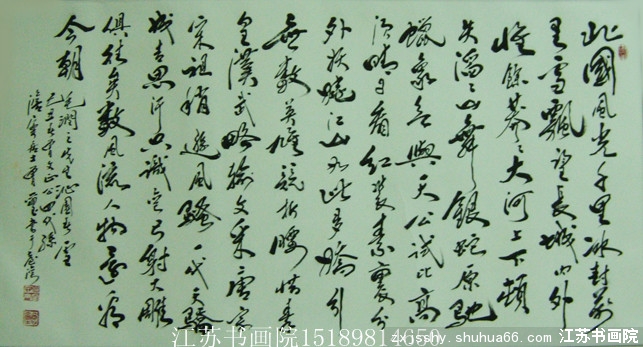 北國風光千里冰封萬
里雪飄望長城內外
惟餘莽〻大河上下頓
失滔〻山舞銀蛇原馳
蠟象欲與天公試比高
須晴日看紅裝素裹分
外妖嬈江山如此多嬌引
無數英雄競折腰惜秦
皇漢武略輸文采唐宗
宋祖稍遜風騷一代天驕
成吉思汗只識彎弓射大雕
俱往矣數風流人物還看
今朝
毛潤之先生沁園春雪
江苏书画院15189814650
zxjsshy.shuhua66.com 江苏书画院